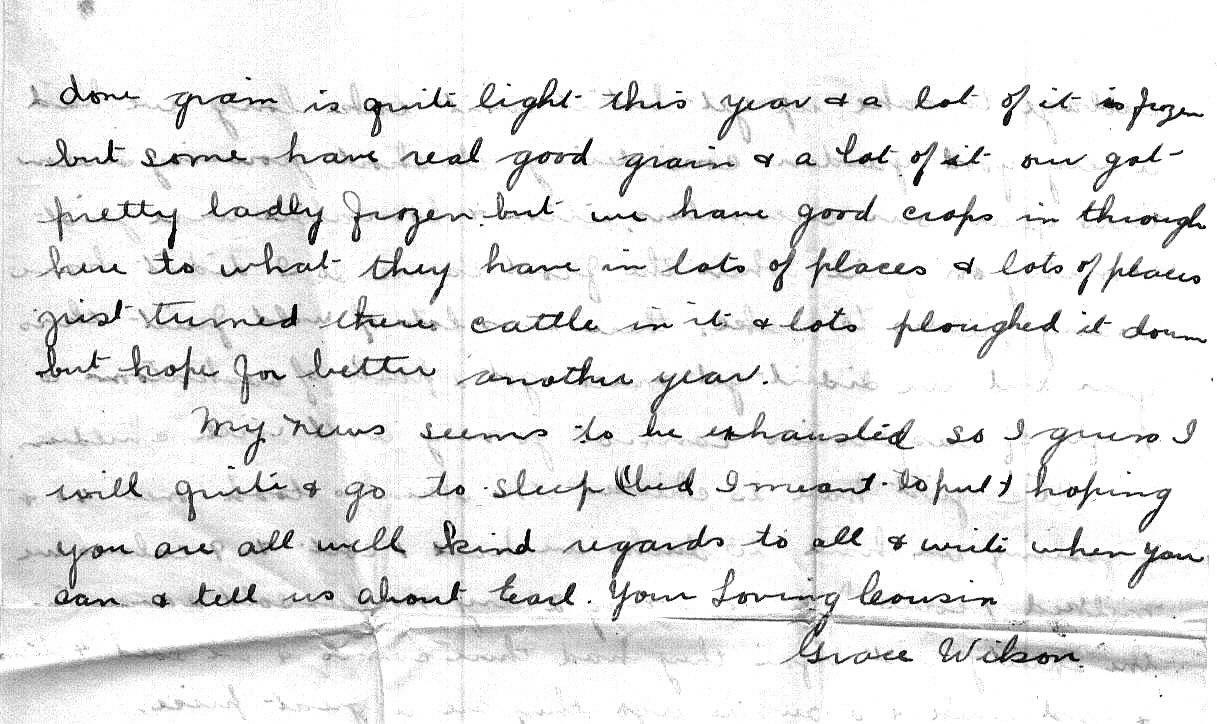 done grain is quite light this year & a lot of it is frozen
but some have real good grain & a lot of it our got
pretty badly frozen but we have good crops in through
here to what they have in lots of places & lots of places
just turned there cattle in it & lots ploughed it down
but hope for better another year.
My news seems to be exhausted so I guess I
will quite & go to sleep (bed I meant to put) hoping
you are all well kind regards to all & write when you
can & tell us about Earl. Your Loving Cousin
Grace Wilson.